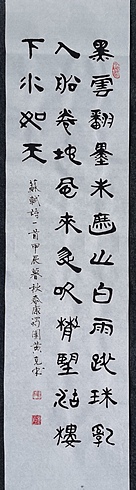 黑雲翻墨未遮山白雨跳珠乱
入船卷地風來忽吹散望湖樓
下水如天
蘇軾詩一首甲辰暮秋泰康